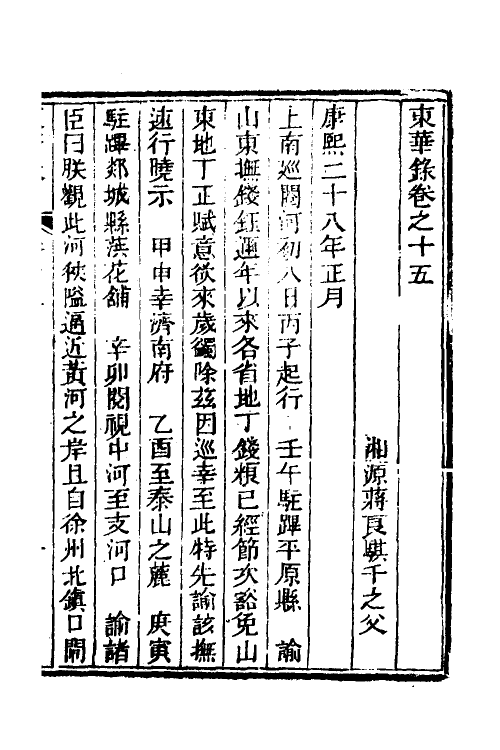 東華錄卷之十五
湘源蔣良騏千之父
康熙二十八年正月
上南巡閱河初八日丙子起行 壬午駐蹕平原縣 諭
山東撫錢鈺邇年以來各省地丁錢糧已經節次豁免山
東地丁正賦意欲來歲蠲除茲因巡幸至此特先諭該撫
速行曉示 甲申幸濟南府 乙酉至泰山之麓 庚寅
駐蹕郯城縣葓花舖 辛卯閱視中河至支河口 諭諸
臣曰朕觀此河狹隘逼近黃河之岸且自徐州北鎮口閘